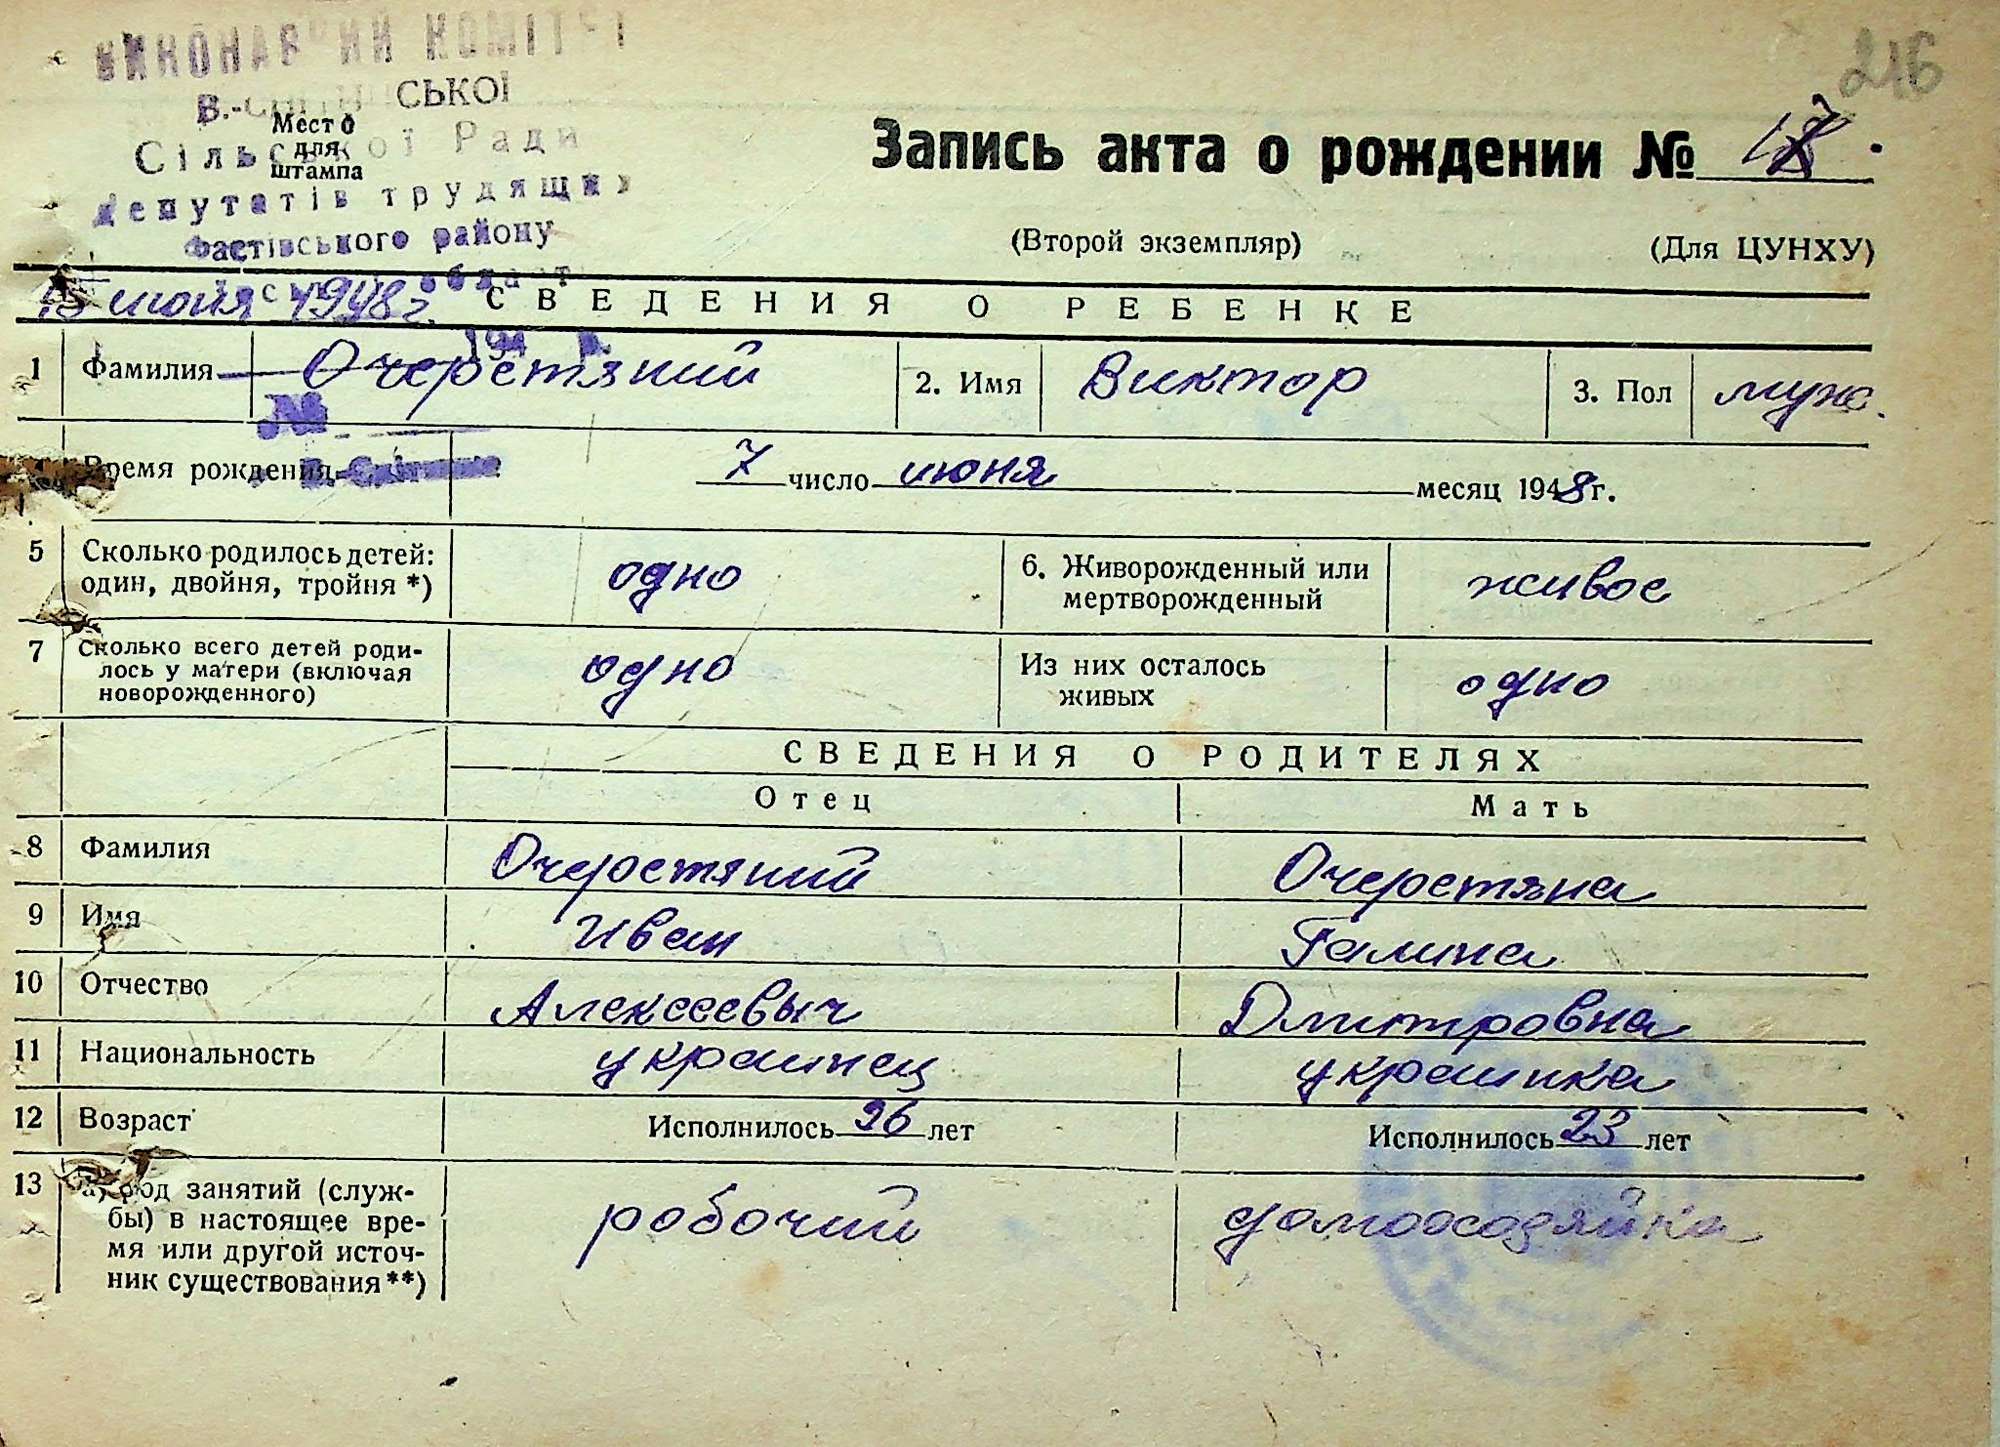 216
ВИКОНАВЧИЙ КОМІТЕТ
СЬКОЇ
Место
для
штампа
Сільської Ради
Депутатів трудящих
Фастівського району
област
Запись акта о рождении №
(Второй экземпляр) (Для ЦУНХУ)
июня 1948 г.
194 р.
СВЕДЕНИЯ О РЕБЕНКЕ
1 Фамилия Очеретяний 2. Имя Виктор 3. Пол муж.
№
Время рождения 7 число июня месяц 1948 г.
5 Сколько родилось детей: один, двойня, тройня *) одно 6. Живорожденный или мертворожденный живое
7 Сколько всего детей родилось у матери (включая новорожденного) одно Из них осталось живых одно
СВЕДЕНИЯ О РОДИТЕЛЯХ
Отец Мать
8 Фамилия Очеретяний Очеретяна
9 Имя Иван Галина
10 Отчество Алексеевыч Дмитровна
11 Национальность украинец украинка
12 Возраст Исполнилось 26 лет Исполнилось 23 лет
13 а) род занятий (службы) в настоящее время или другой источник существования **) робочий домоосодяйка